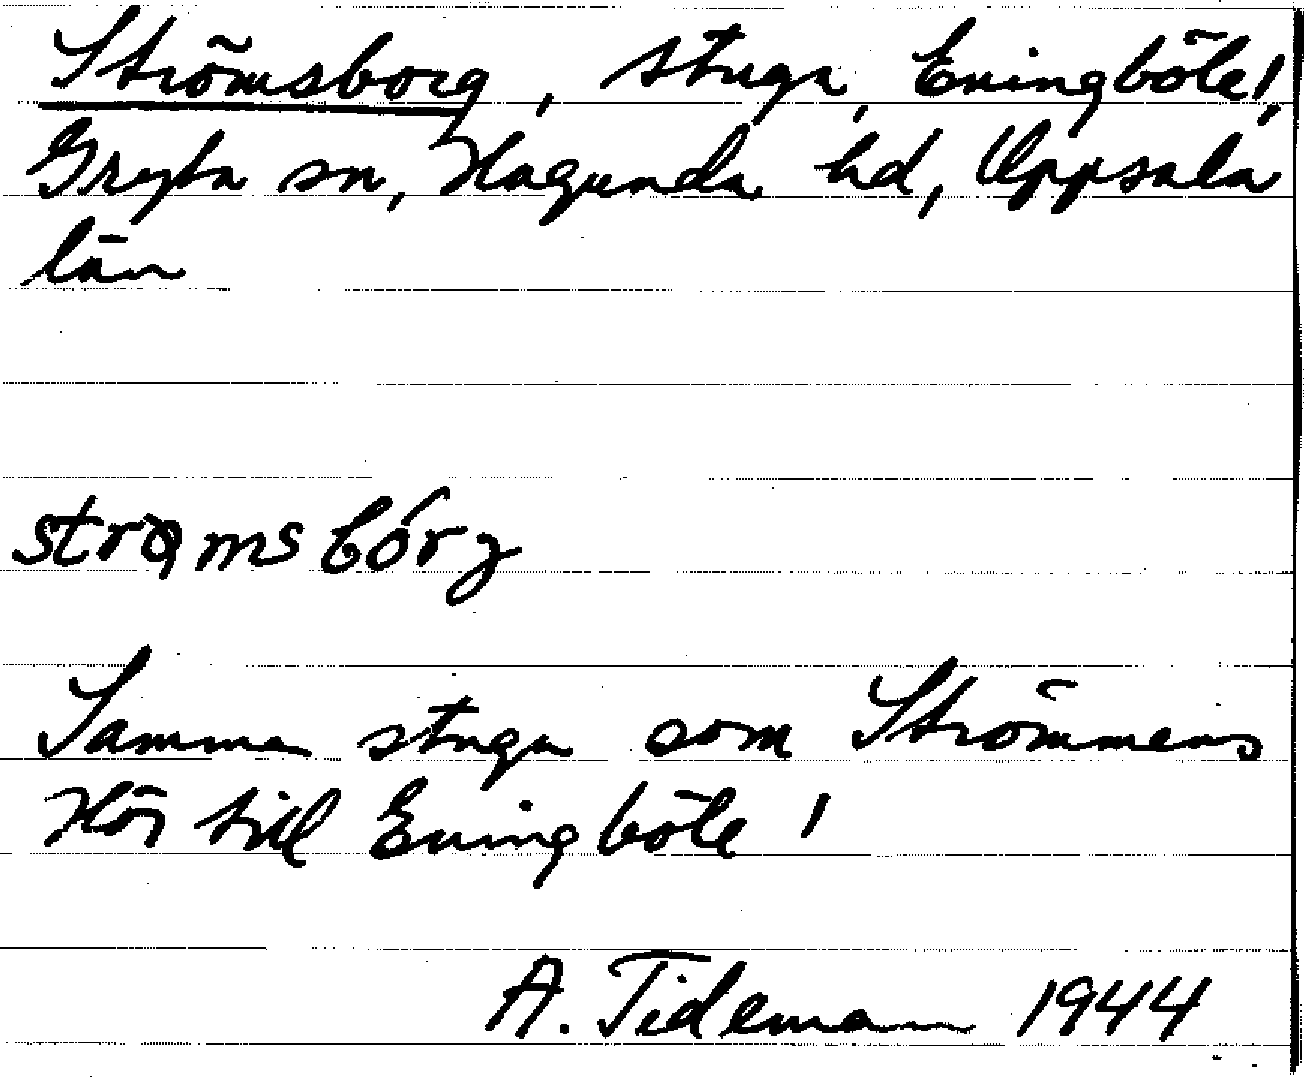 Strömsborg, stuga, Eningböle!,
Gryta sn, Hagunda hd, Uppsala
län
strømsbórg
Samma stuga som Strömmens
Hör till Eningböle!
A. Tideman 1944